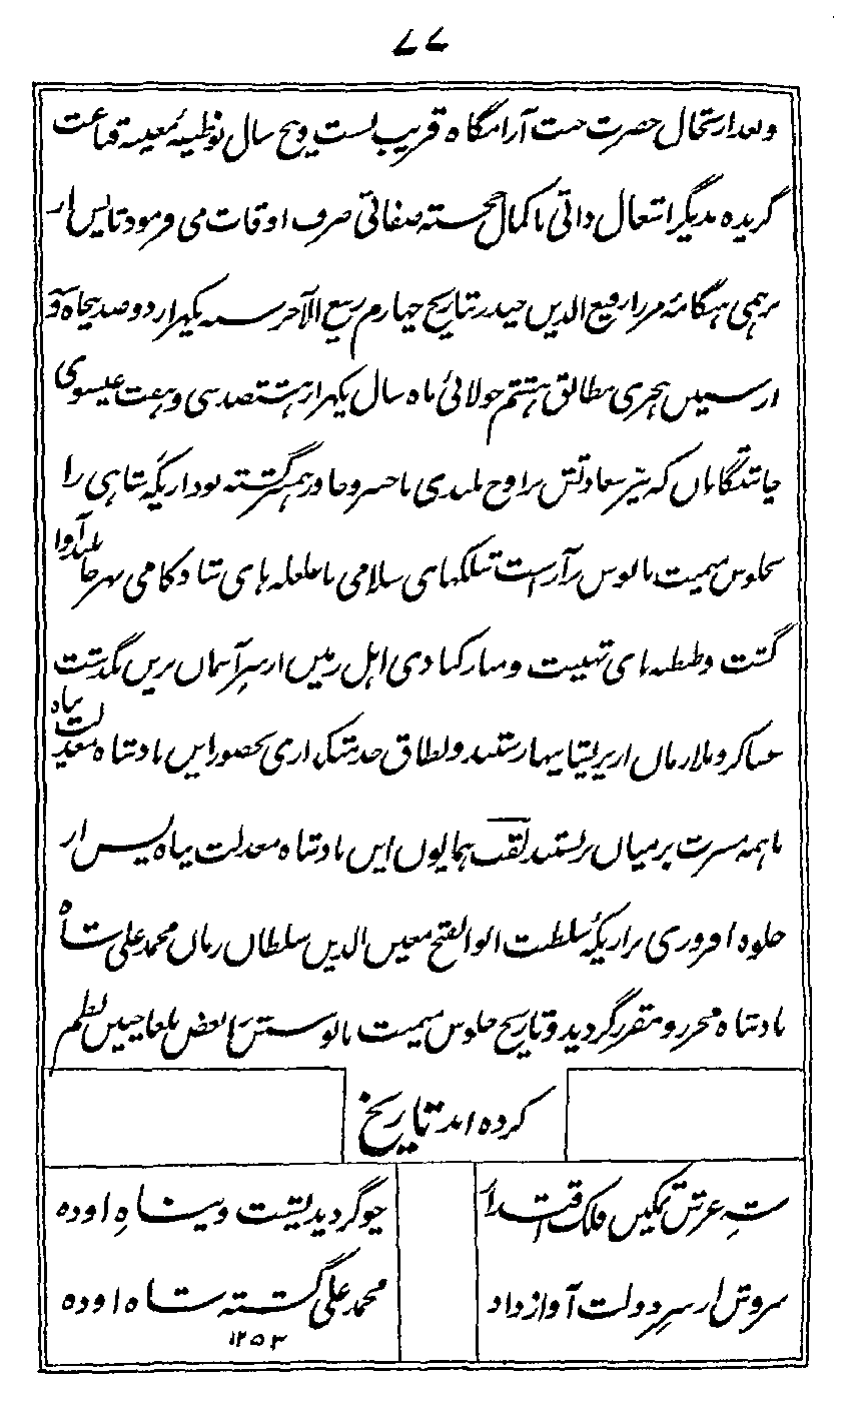 ۷۷
و بعد ارتحال حضرت جنت آرامگاه قریب بست و پنج سال بوظیفهٔ معینه قناعت
گزیده بدیگر اشتغال ذاتی با کمال خجسته صفاتی صرف اوقات می فرمود تا پس از
برهمی هنگامهٔ مرزا رفیع الدین حیدر بتاریخ چهارم ربیع الآخر سنه یکهزار دو صد پنجاه و
از سنین هجری مطابق هشتم جولائی ماه سال یکهزار هشتصد سی و هفت عیسوی
چاشتگاهان که نیر سعادتش بر اوج بلندی با خسرو خاور همسر گشته بود اریکهٔ شاهی را
بجلوس میمنت مانوس برآراست شلکهای سلامی با غلغله های شادکامی بهر جا بلند آوا
گشت و طنطنه های تهنیت و مبارکبادی اهل زمین از سر آسمان برین بگذشت
عساکر و ملازمان از پریشانیها رستند و نطاق خدمتگذاری بحضور این بادشاه معدلت پناه
با همه مسرت بر میان بستند لقب همایون این بادشاه معدلت پناه پس از
جلوه افروزی بر اریکهٔ سلطنت ابو الفتح معین الدین سلطان زمان محمد علی شاه
بادشاه محرر و مقرر گردید و تاریخ جلوس میمنت مانوسش بعض بلغا چنین نظم
کرده اند تاریخ
شه عرش تمکین فلک اقتدار
چو گردید پشت و پناهِ اوده
سروش از سرِ دولت آواز داد
محمد علی گشته شاه اوده
۱۲۵۳